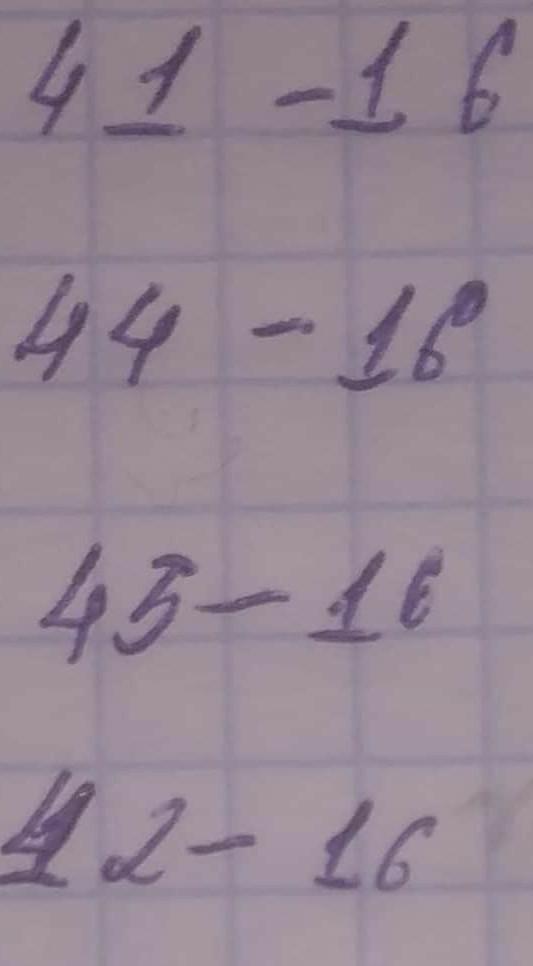 41 - 16
44 - 16
45 - 16
42 - 16